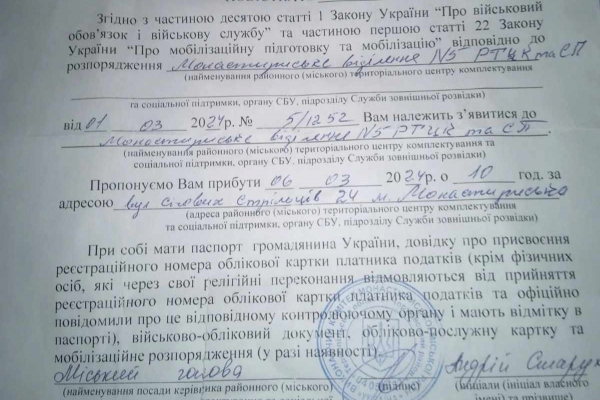 Згідно з частиною десятою статті 1 Закону України “Про військовий
обов’язок і військову службу” та частиною першою статті 22 Закону
України “Про мобілізаційну підготовку та мобілізацію” відповідно до
розпорядження Монастириське відділення N5 РТЦК та СП
(найменування районного (міського) територіального центру комплектування
та соціальної підтримки, органу СБУ, підрозділу Служби зовнішньої розвідки)
від 01 03 2024р. № 5/1252 Вам належить з’явитися до
Монастириське відділення N5 РТЦК та СП
(найменування районного (міського) територіального центру комплектування та
соціальної підтримки, органу СБУ, підрозділу Служби зовнішньої розвідки)
Пропонуємо Вам прибути 06 03 2024р. о 10 год. за
адресою вул Січових Стрільців 24 м. Монастириська
(адреса районного (міського) територіального центру комплектування
та соціальної підтримки, органу СБУ, підрозділу Служби зовнішньої розвідки)
При собі мати паспорт громадянина України, довідку про присвоєння
реєстраційного номера облікової картки платника податків (крім фізичних
осіб, які через свої релігійні переконання відмовляються від прийняття
реєстраційного номера облікової картки платника податків та офіційно
повідомили про це відповідному контролюючому органу і мають відмітку в
паспорті), військово-обліковий документ, обліково-послужну картку та
мобілізаційне розпорядження (у разі наявності).
Міський голова Андрій
(найменування посади керівника районного (міського) (підпис) (ініціали (ініціал власного
імені) та прізвище)